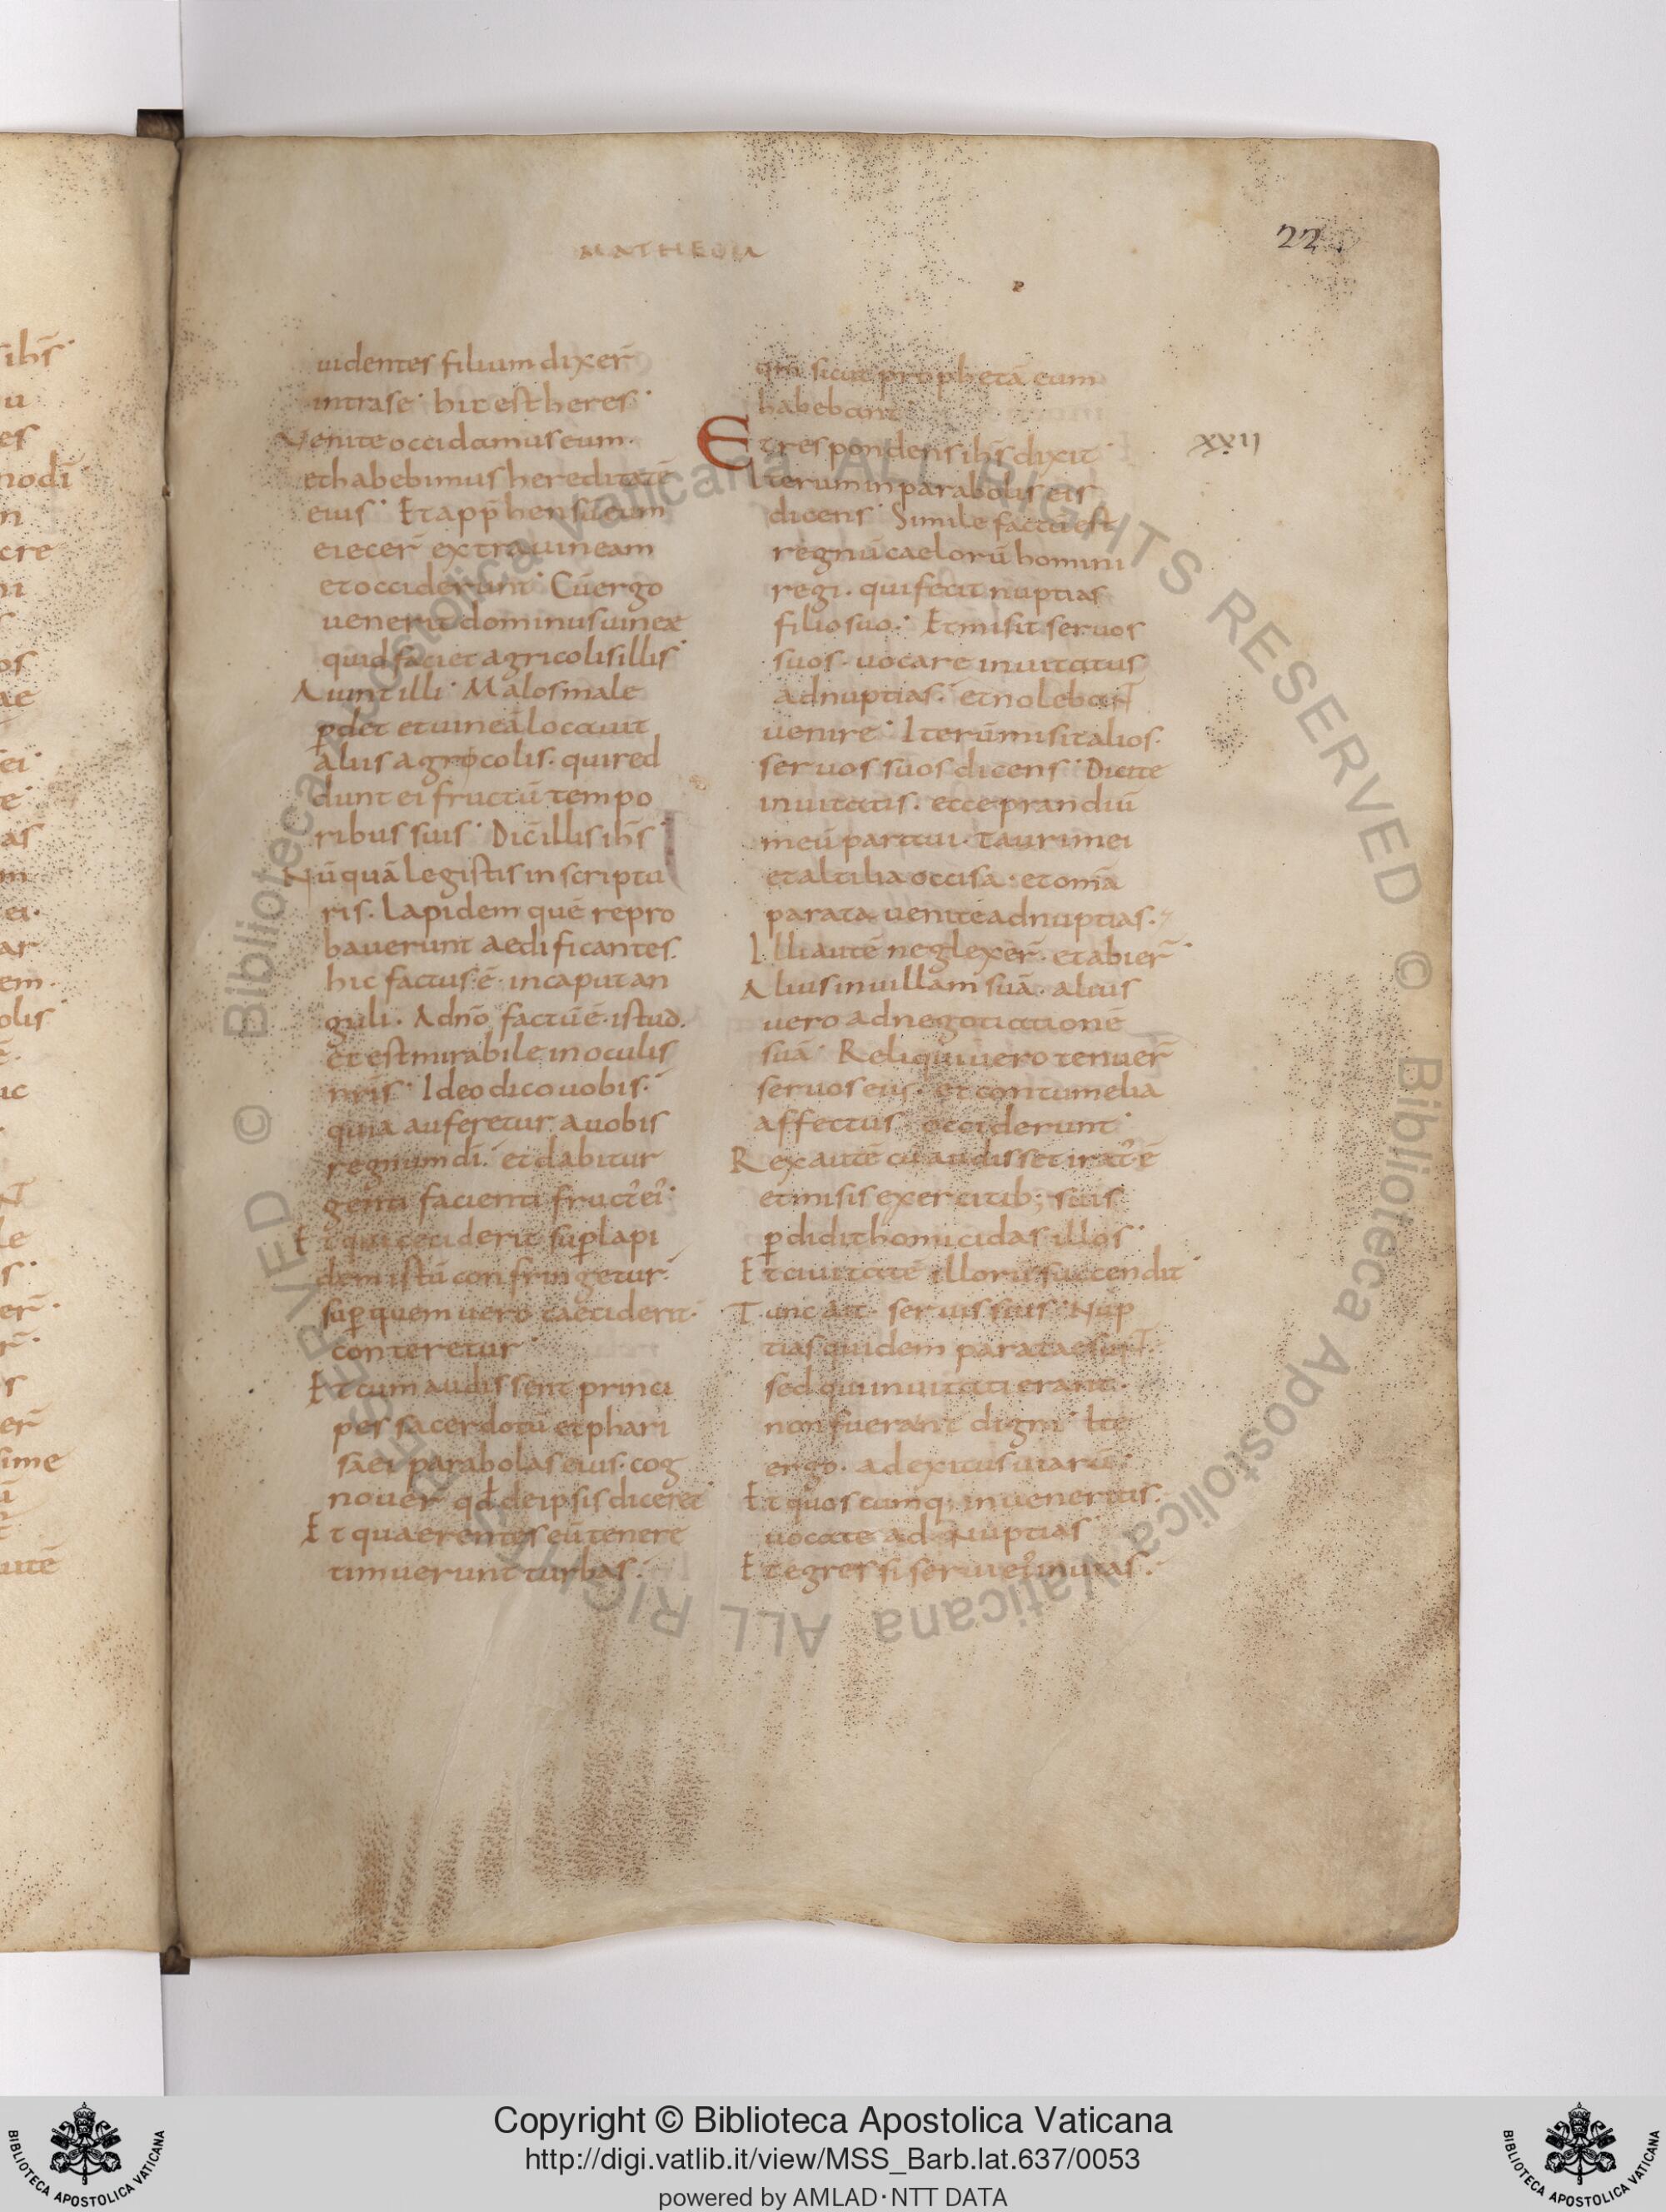 MATHEUM
22
uidentes filium dixer̄
intrase· hic est heres·
Venite occidamus eum·
et habebimus hereditatē
eius· Et appˉhensū eum
eiecer̄ extra uineam
et occiderunt· Cū ergo
uenerit dominus uineae
quid faciet agricolis illis·
Aiunt illi· Malos male
ꝑdet et uineā locauit
aliis agrocolis· qui red
dunt ei fructū tempo
ribus suis· Dic̄ illis ih̄s·
Nūquā legistis in scriptu
ris· Lapidem quē repro
bauerunt aedificantes·
hic factus ē· in caput an
guli· A dn̄o factū ē· istud·
et est mirabile in oculis
nr̄is· Ideo dico uobis·
quia auferetur a uobis
regnum dī· et dabitur
genti facienti fruct᾽ ei᾽·
Et qui ceciderit suꝑ lapi
dem istū confringetur·
suꝑ quem uero caeciderit·
conteretur·
Et cum audissent princi
pes sacerdotū et phari
saei parabolas eius· cog
nouer̄ qd̄ de ipsis diceret·
Et quaerentes eū tenere
timuerunt turbas·
qm̄ sicut prophetā eum
habebant·
Et respondens ih̄s dixit·
Iterum in parabolis eis
dicens· Simile factū est
regnū caelorū homini
regi· qui fecit nuptias
filio suo· Et misit seruos
suos· uocare inuitatus
ad nuptias· et nolebant
uenire· Iterū misit alios·
seruos suos dicens· Dicite
inuitatis· ecce prandiū
meū paraui· Tauri mei
et altilia occisa· et om̄a
parata uenite ad nuptias·
Illi autē neglexer̄· et abier̄·
Alius in uillam suā· alius
uero ad negotiationē
suā· Reliqui uero tenuer̄
seruos eius· et contumelia
affectus occiderunt·
Rex autē cū audisset irat᾽ ē
et misis exercitib; suis
ꝑdidit homicidas illos·
Et ciuitatē illorū succendit·
Tunc ait· seruis suis· Nup
tias quidem paratae sunt·
sed qui inuitati erant·
non fuerant digni· Ite
ergo· ad exitus uiarū·
Et quoscumq; inueneritis·
uocate ad nuptias·
Et egressi serui ei᾽ in uias·
XXII
Copyright © Biblioteca Apostolica Vaticana
http://digi.vatlib.it/view/MSS_Barb.lat.637/0053
powered by AMLAD·NTT DATA
BIBLIOTECA APOSTOLICA VATICANA
BIBLIOTECA APOSTOLICA VATICANA
© Biblioteca Apostolica Vaticana ALL RIGHTS RESERVED © Biblioteca Apostolica Vaticana ALL RIGHTS RESERVED